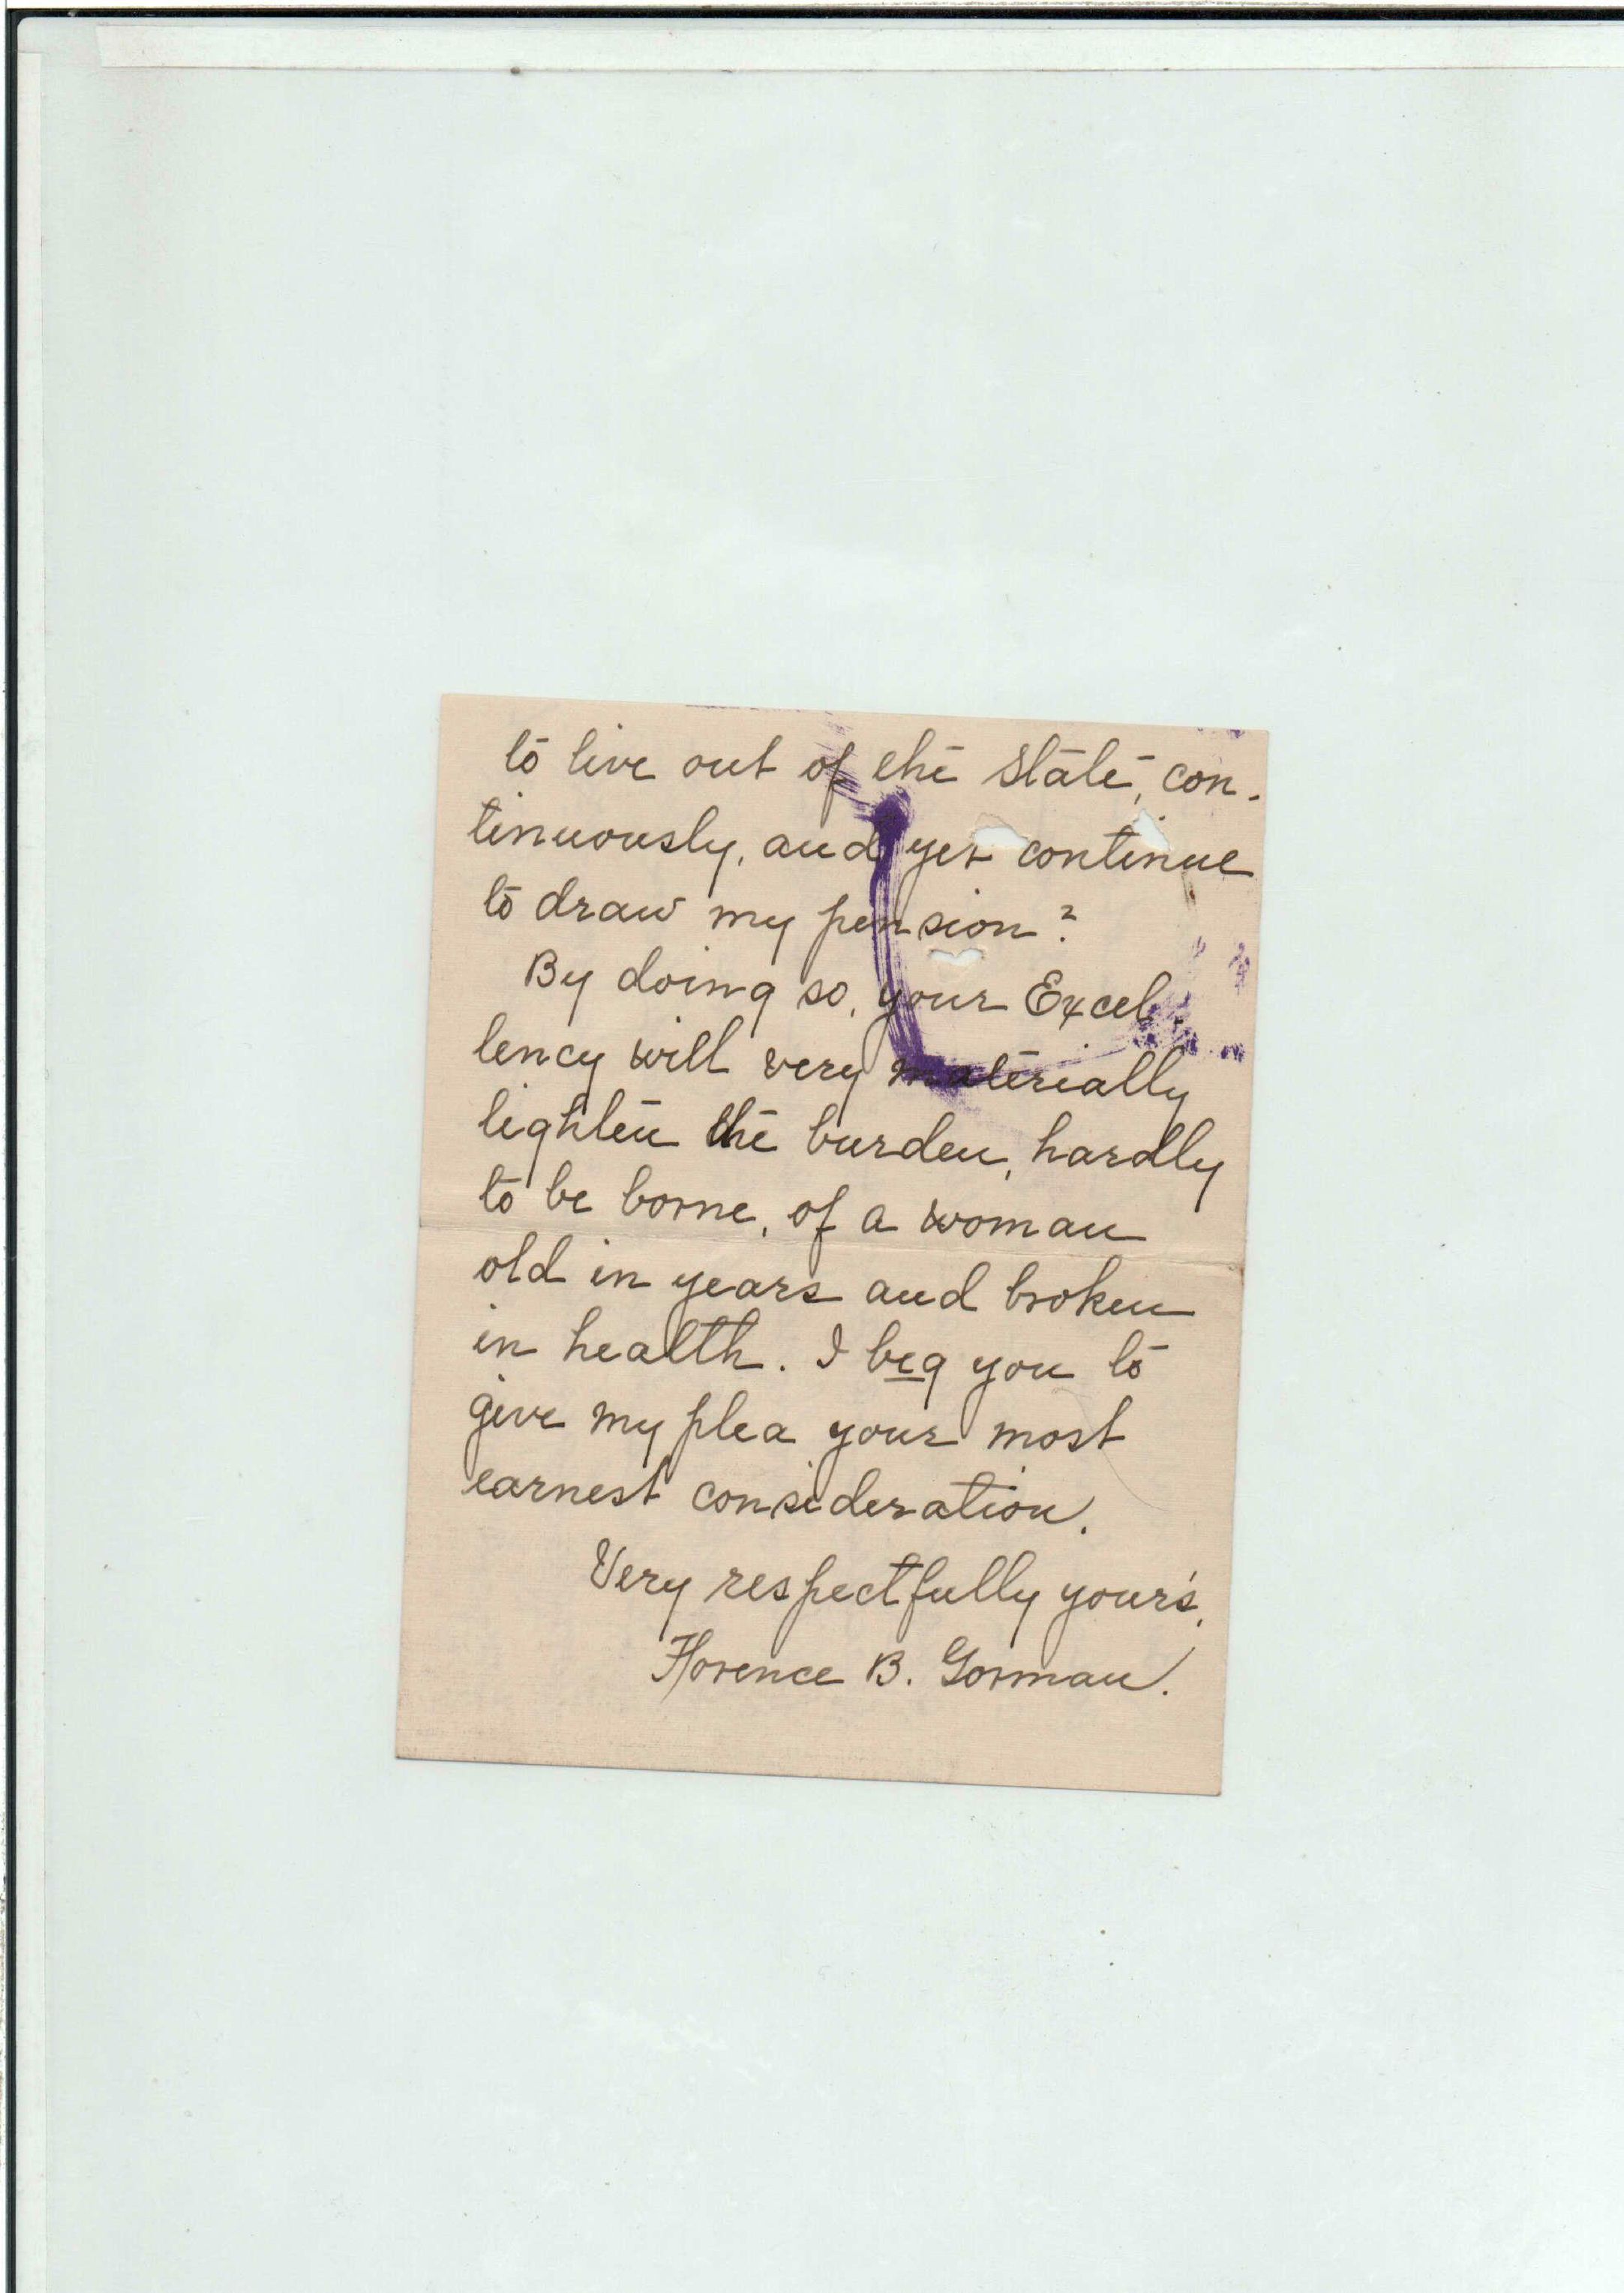 to live out of the State, con-
tinuously, and yet continue
to draw my pension?
By doing so, your Excel-
lency will very materially
lighten the burden, hardly
to be borne, of a woman
old in years and broken
in health. I beg you to
give my plea your most
earnest consideration.
Very respectfully your's,
Florence B. Gorman.